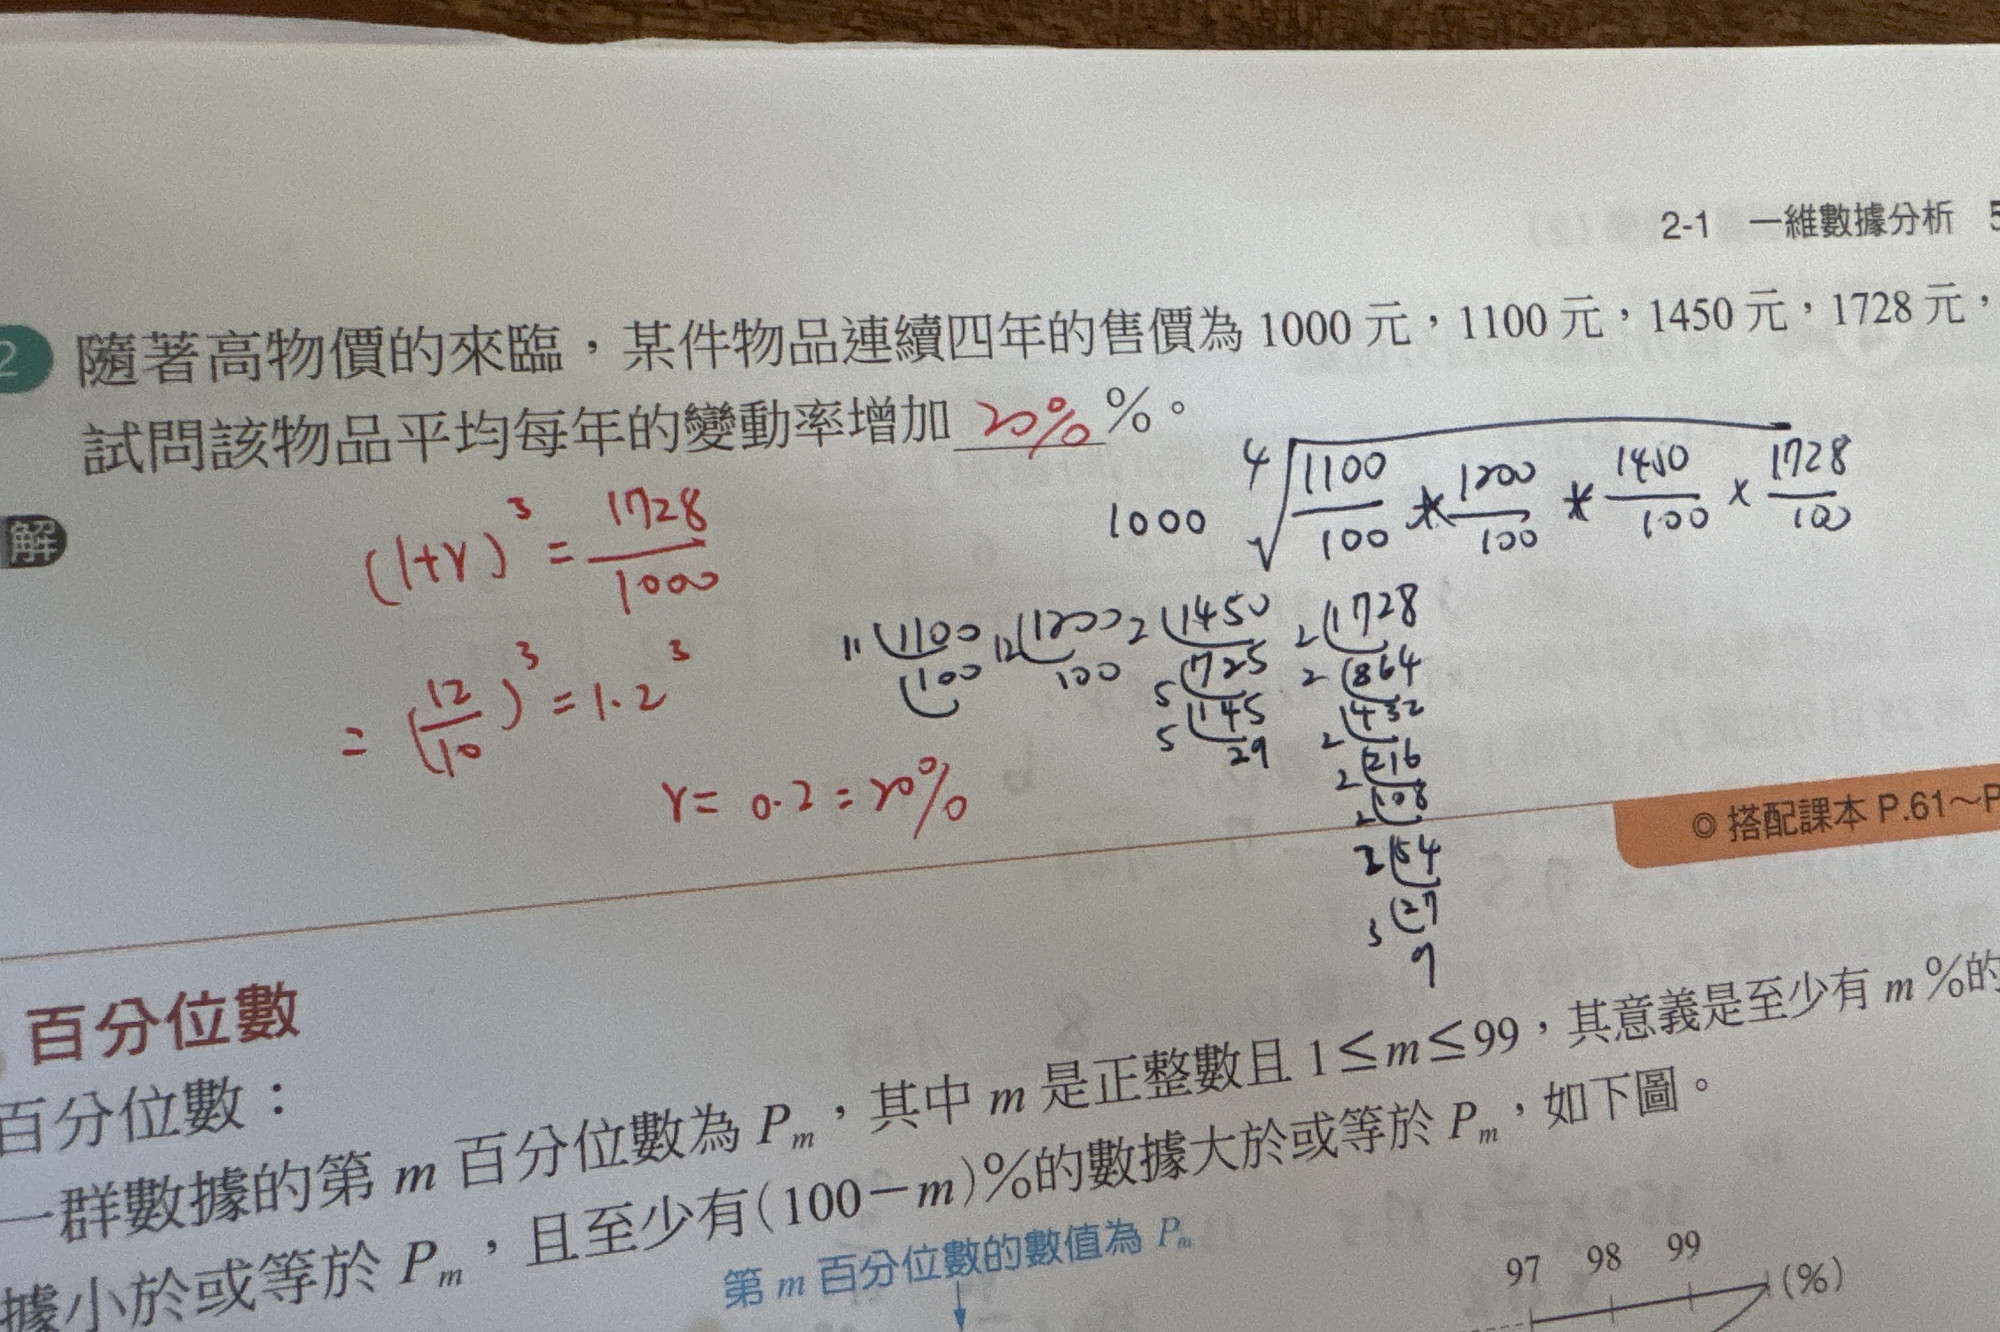 2-1 一維數據分析 5
2 隨著高物價的來臨，某件物品連續四年的售價為 1000 元，1100 元，1450 元，1728 元，
試問該物品平均每年的變動率增加 20% %。
解
(1+r)³ = 1728/1000
= (12/10)³ = 1.2³
r = 0.2 = 20%
1000 ⁴√(1100/100 * 1200/100 * 1450/100 × 1728/100)
11 1100 12 1200 2 1450 2 1728
100 100 5 725 2 864
5 145 2 432
29 2 216
2 108
2 54
3 27
9
◎ 搭配課本 P.61～P
百分位數
百分位數：
一群數據的第 m 百分位數為 Pm，其中 m 是正整數且 1≤m≤99，其意義是至少有 m％的
據小於或等於 Pm，且至少有(100－m)％的數據大於或等於 Pm，如下圖。
第 m 百分位數的數值為 Pm
97 98 99 (%)